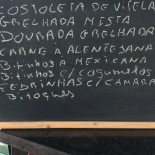 COSTOLETA DE VITELA
GRELHADA MISTA
DOURADA GRELHADA
CARNE À ALENTEJANA
Bifinhos A MEXICANA
Bifinhos c/ cogumelos
FEBRINHAS c/ CAMARA
Bitoques